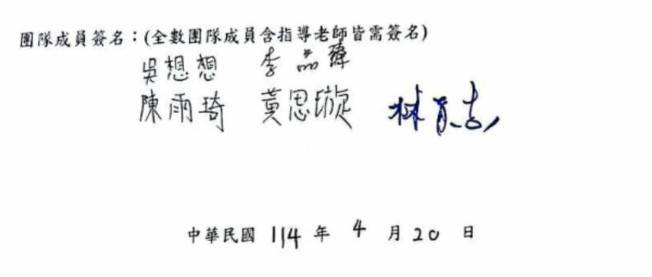 團隊成員簽名：(全數團隊成員含指導老師皆需簽名)
吳想想 李品瑋
陳雨琦 黃思璇 林
中華民國 114 年 4 月 20 日